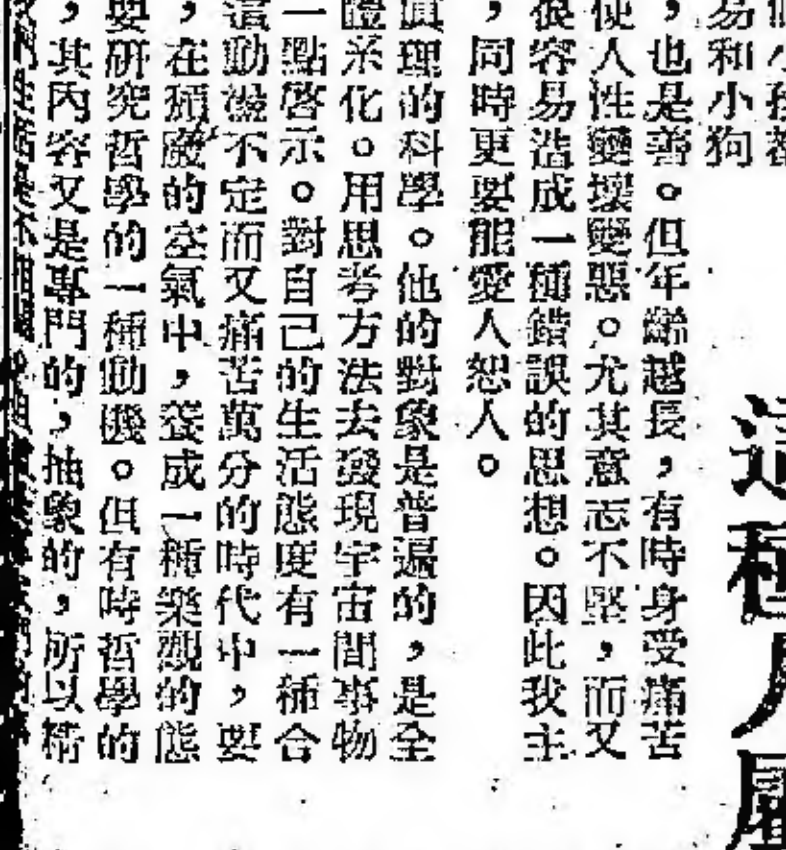 這種人
易和小狗
，也是善。但年齡越長，有時身受痛苦
使人性變壞變惡。尤其意志不堅，而又
很容易造成一種錯誤的思想。因此我主
，同時更要能愛人恕人。
真理的科學。他的對象是普遍的，是全
體系化。用思考方法去發現宇宙間事物
一點啓示。對自己的生活態度有一種合
這動盪不定而又痛苦萬分的時代中，要
，在頹廢的空氣中，養成一種樂觀的態
要研究哲學的一種動機。但有時哲學的
，其內容又是專門的，抽象的，所以精